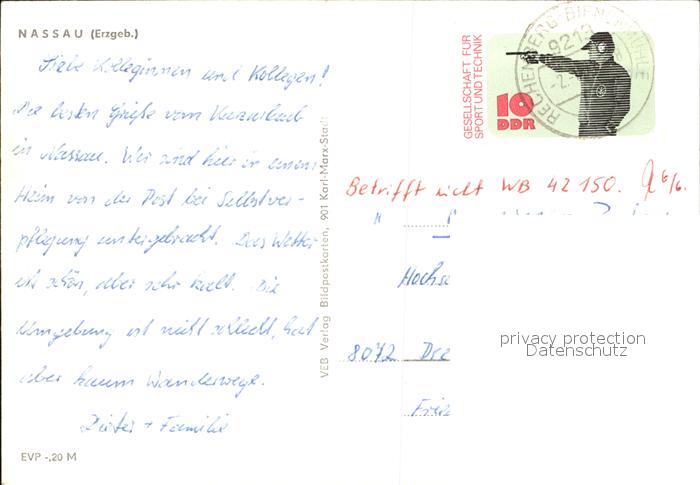 NASSAU (Erzgeb.)
Liebe Kolleginnen und Kollegen!
Die besten Grüße vom Kurzurlaub
in Nassau. Wir sind hier in einem
Heim von der Post bei Selbstver-
pflegung untergebracht. Das Wetter
ist schön, aber sehr kalt. Die
Umgebung ist nicht schlecht, hat
aber kaum Wanderwege.
Dieter + Familie
EVP -,20 M
VEB Verlag Bildpostkarten, 901 Karl-Marx-Stadt
GESELLSCHAFT FÜR
SPORT UND TECHNIK
10
DDR
RECHENBERG-BIENENMÜHLE
9213
Betrifft nicht WB 42 150. 6/6.
Hochs
8072 Dre
Frie
privacy protection
Datenschutz